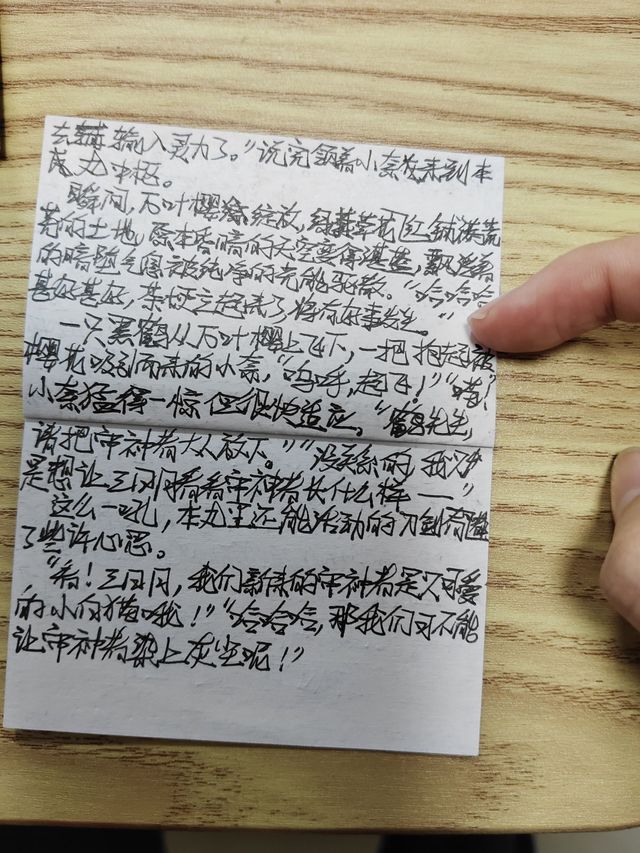 去输入灵力了。”说完领着小奈发来到本
成丸中枢。
瞬间,万叶樱绽放,绿草红
的土地,原本昏暗的天空变得湛蓝,飘
的暗堕气息被纯净的光能驱散。“哈哈哈
甚好甚好,茶柱立起来了将有好事发生。”
一只黑鹤从万叶樱上飞下,一把抱起被
樱花吸引而来的小奈,“呜呼,起飞!”“喵!”
小奈猛得一惊但很快适应。“鹤先生,
请把审神者大人放下。”“没关系的,我只
是想让三日月看看审神者长什么样——”
这么一吼,本丸里还能活动的刀剑
了些许心思。
“看!三日月,我们新来的审神者是只可爱
的小白猫哦!”“哈哈哈,那我们可不能
让审神者染上灰尘呢!”